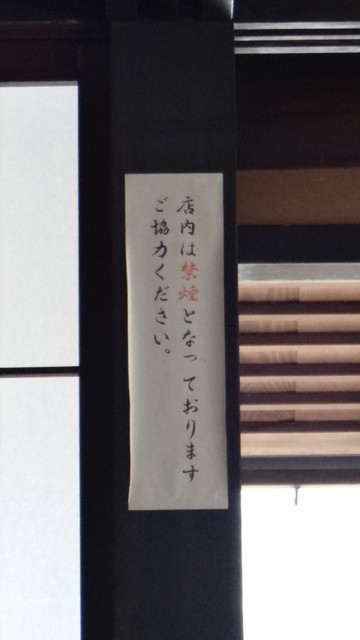 店内は禁煙となっております
ご協力ください。